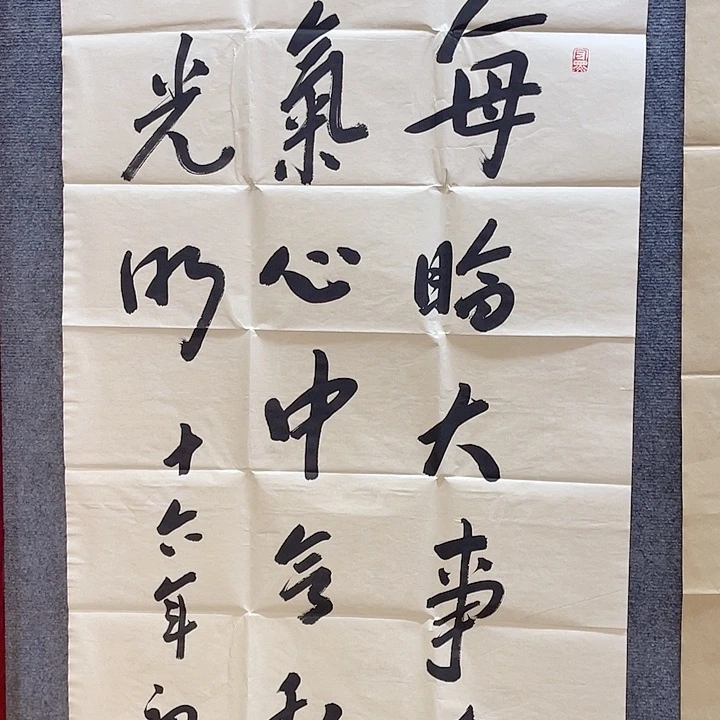 每臨大事
氣心中
光明
十六年